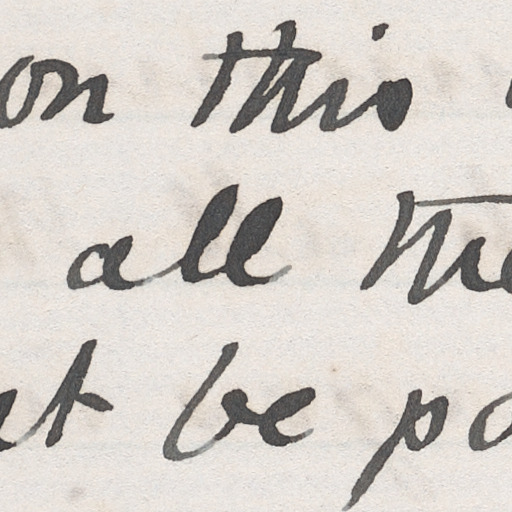 on this
all the
be